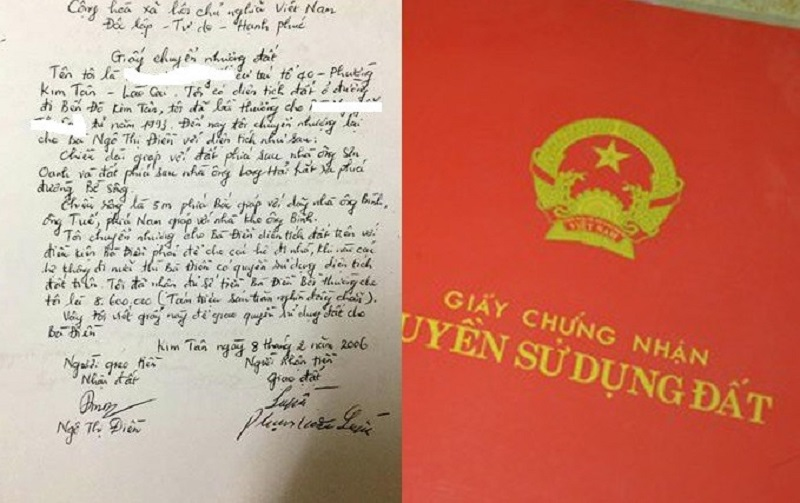 Cộng hoà xã hội chủ nghĩa Việt Nam
Độc lập - Tự do - Hạnh phúc
Giấy chuyển nhượng đất
Tên tôi là cư trú tổ 40 - Phường
Kim Tân - Lào Cai. Tôi có diện tích đất ở đường
đi Bến Đò Kim Tân, tôi đã bồi thường cho
từ năm 1993. Đến nay tôi chuyển nhượng lại
cho Bà Ngô Thị Điền với diện tích như sau:
Chiều dài giáp với đất phía sau nhà ông Sơn
Oanh và đất phía sau nhà ông Long Hải kất xa phía
đường Bờ sông.
Chiều rộng là 5m phía Bắc giáp với dãy nhà ông Bính,
ông Tuế, phía Nam giáp với nhà kho ông Bính.
Tôi chuyển nhượng cho Bà Điền diện tích đất trên với
điều kiện Bà Điền phải để cho các hộ đi nhờ, khi nào các
hộ không đi nữa thì Bà Điền có quyền sử dụng diện tích
đất trên. Tôi đã nhận đủ số tiền Bà Điền Bồi thường cho
tôi là 8.600,000 (Tám triệu sáu trăm nghìn đồng chẵn).
Vậy tôi viết giấy này để giao quyền sử dụng đất cho
Bà Điền
Kim Tân ngày 8 tháng 2 năm 2006
Người giao tiền Người nhận tiền
Nhận đất Giao đất
Ngô Thị Điền
VIỆT NAM
GIẤY CHỨNG NHẬN
UYỀN SỬ DỤNG ĐẤT